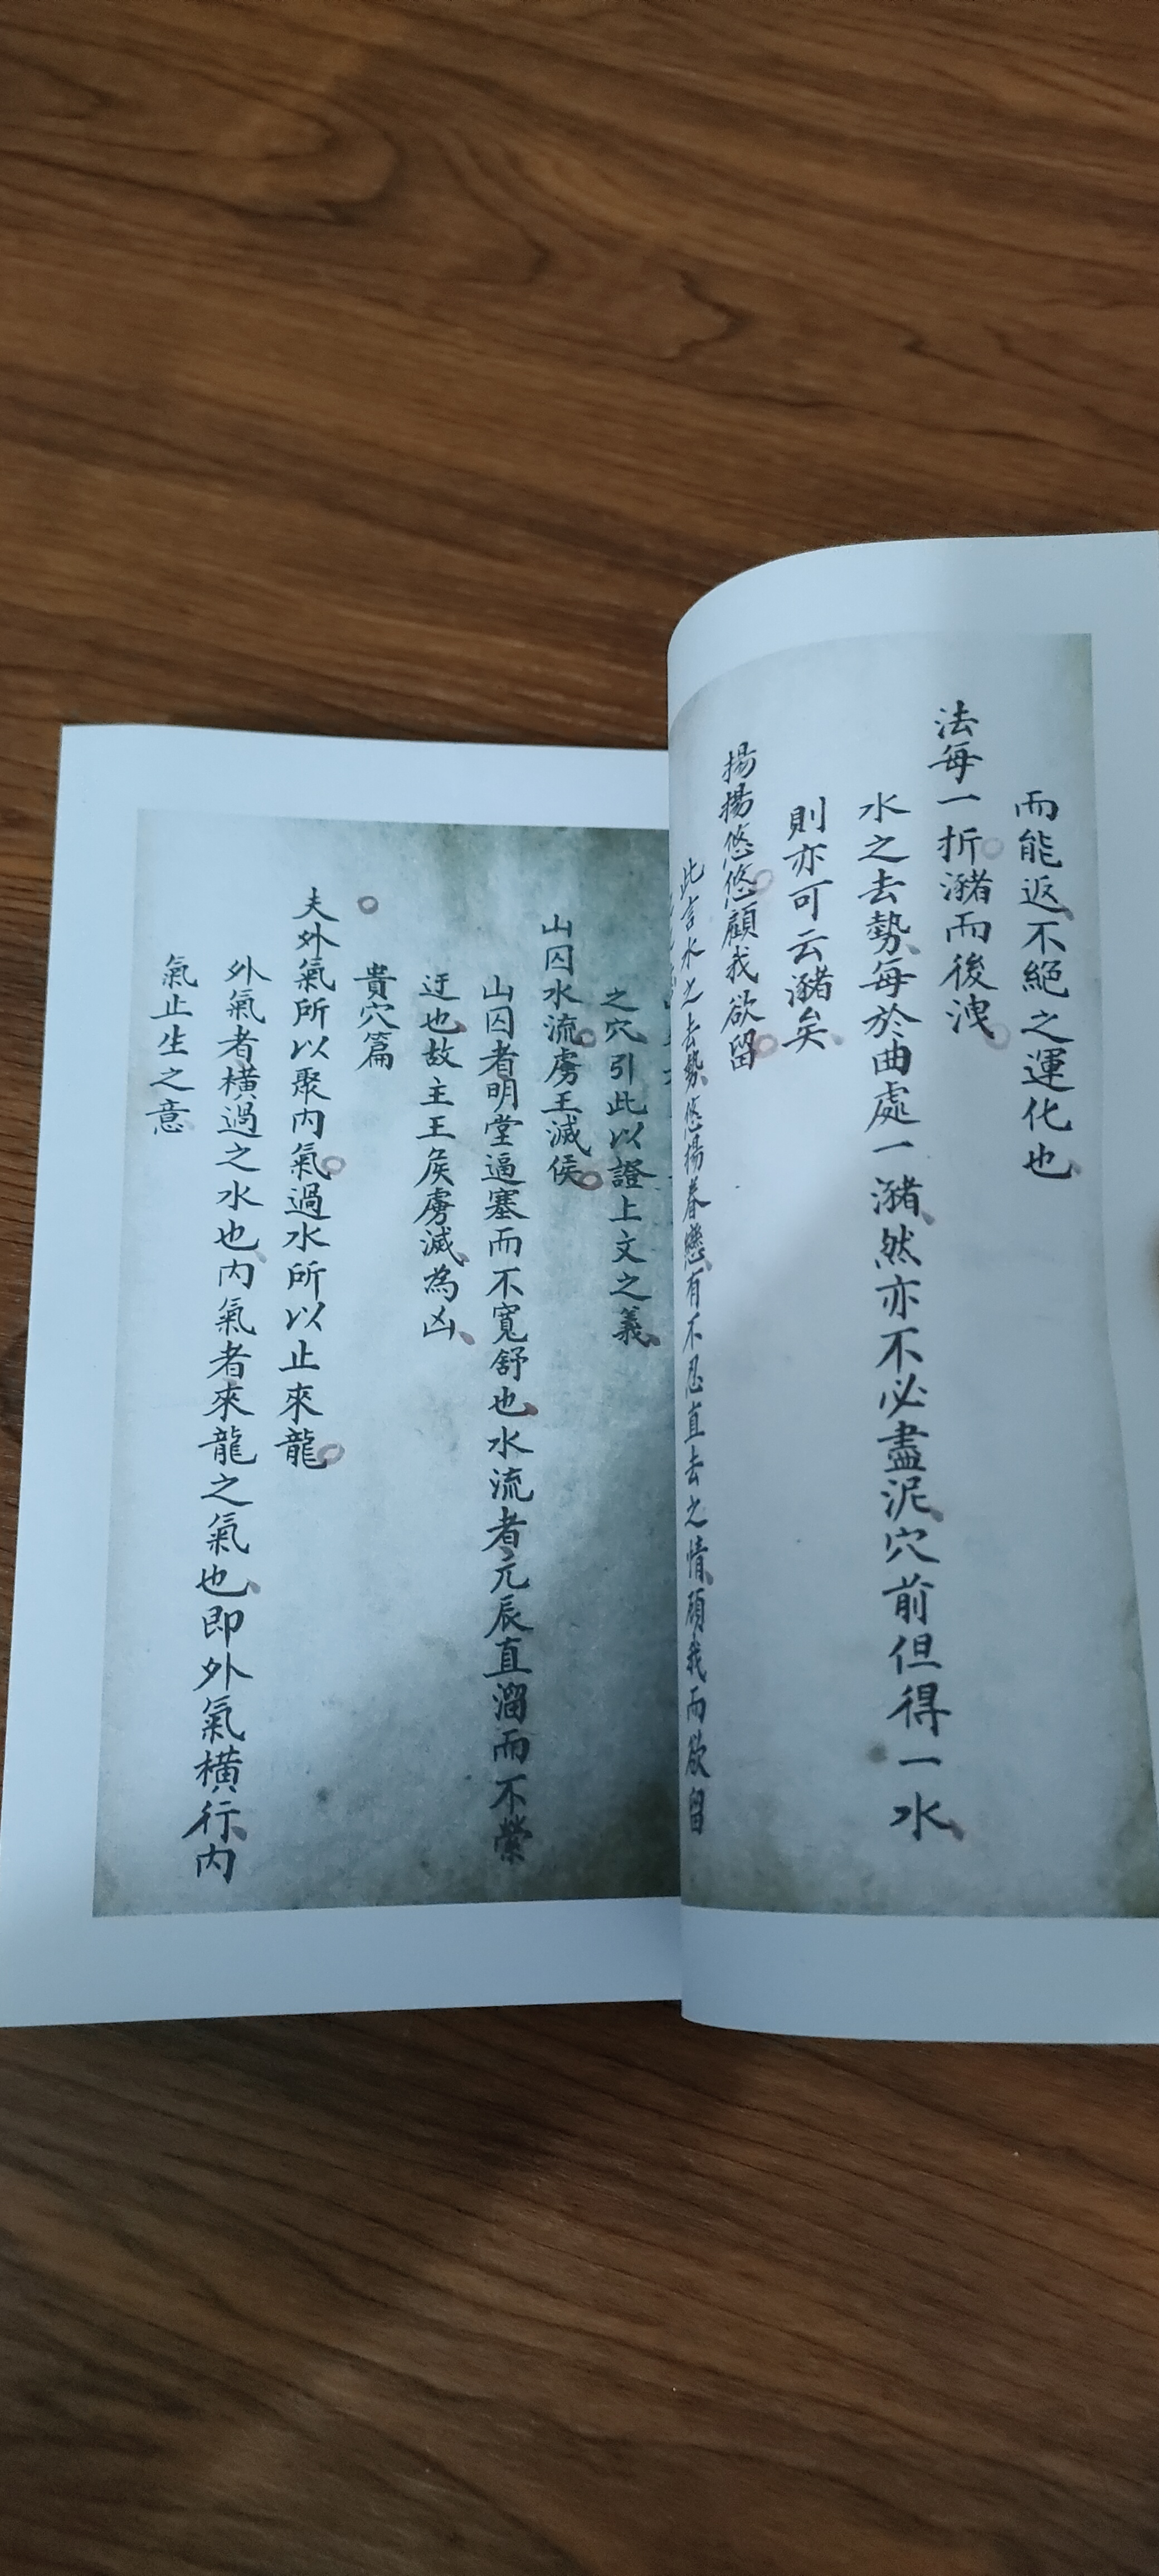 而能返不絕之運化也
法每一折瀦而後洩
水之去勢每於曲處一瀦然亦不必盡泥穴前但得一水
則亦可云瀦矣
揚揚悠悠顧我欲留
此言水之去勢悠揚眷戀有不忍直去之情顧我而欲留
之穴引此以證上文之義
山囚水流虜王滅侯
山囚者明堂逼塞而不寬舒也水流者元辰直溜而不縈
迂也故主王侯虜滅為凶
貴穴篇
夫外氣所以聚內氣過水所以止來龍
外氣者橫過之水也內氣者來龍之氣也即外氣橫行內
氣止生之意